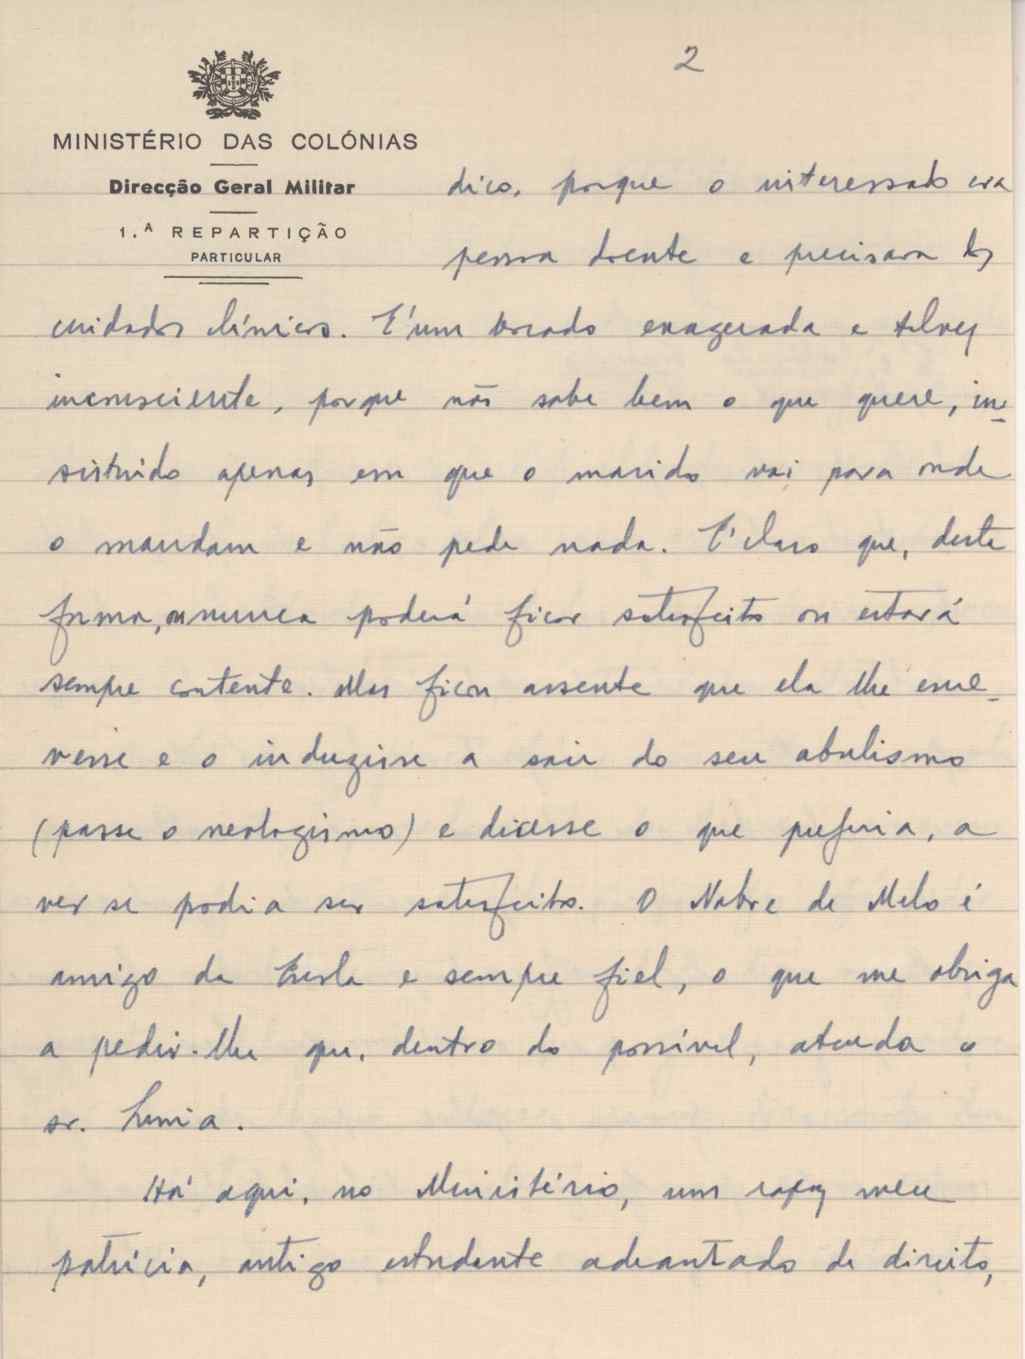 2
MINISTÉRIO DAS COLÓNIAS
Direcção Geral Militar
1.ª REPARTIÇÃO
PARTICULAR
dico, porque o interessado era
pessoa doente e precisava de
cuidados clínicos. É um bocado exagerada e talvez
inconsciente, porque não sabe bem o que quere, in-
sistindo apenas em que o marido vai para onde
o mandam e não pede nada. É claro que, desta
forma, ou nunca poderá ficar satisfeito ou estará
sempre contente. Mas ficou assente que ela lhe escre-
vesse e o induzisse a sair do seu abulismo
(passe o neologismo) e dicesse o que preferia, a
ver se podia ser satisfeito. O Nobre de Melo é
amigo da Escola e sempre fiel, o que me obriga
a pedir-lhe que, dentro do possível, atenda o
sr.
Há aqui, no Ministério, um rapaz meu
patrício, antigo estudante adeantado de direito,